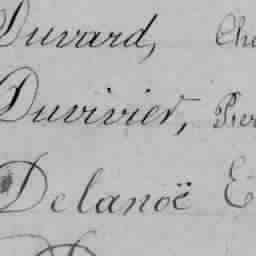 Duvard, Cha
Duvivier, Pier
Delanoë E